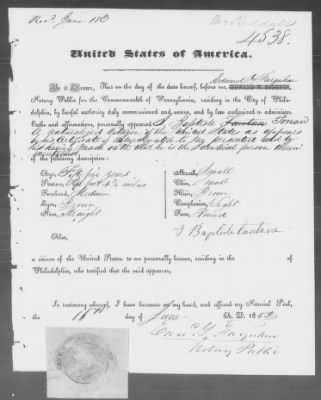 Recd June 18
4538.
United States of America.
Be it Known, That on the day of the date hereof, before me, Edward H. Farquhar
Notary Public for the Commonwealth of Pennsylvania, residing in the City of Philadelphia,
by lawful authority duly commissioned and sworn, and by law authorized to administer
Oaths and affirmations, personally appeared J. Baptiste
A naturalized Citizen of the United States as appears
by his Certificate of Naturalization to me presented who by
his having made oath that he is the identical person
of the following description:
Age, Fifty five years
Stature,
Forehead, Medium
Eyes, Brown
Nose, Straight
Mouth, Small
Chin, Small
Hair, Brown
Complexion, Light
Face, Round
Also,
J Baptiste
a citizen of the United States, to me personally known, residing in the of
Philadelphia, who testified that the said appearer,
In testimony whereof, I have hereunto set my hand, and affixed my Notarial Seal,
the 17th day of June A. D. 185
Farquhar
Notary Public